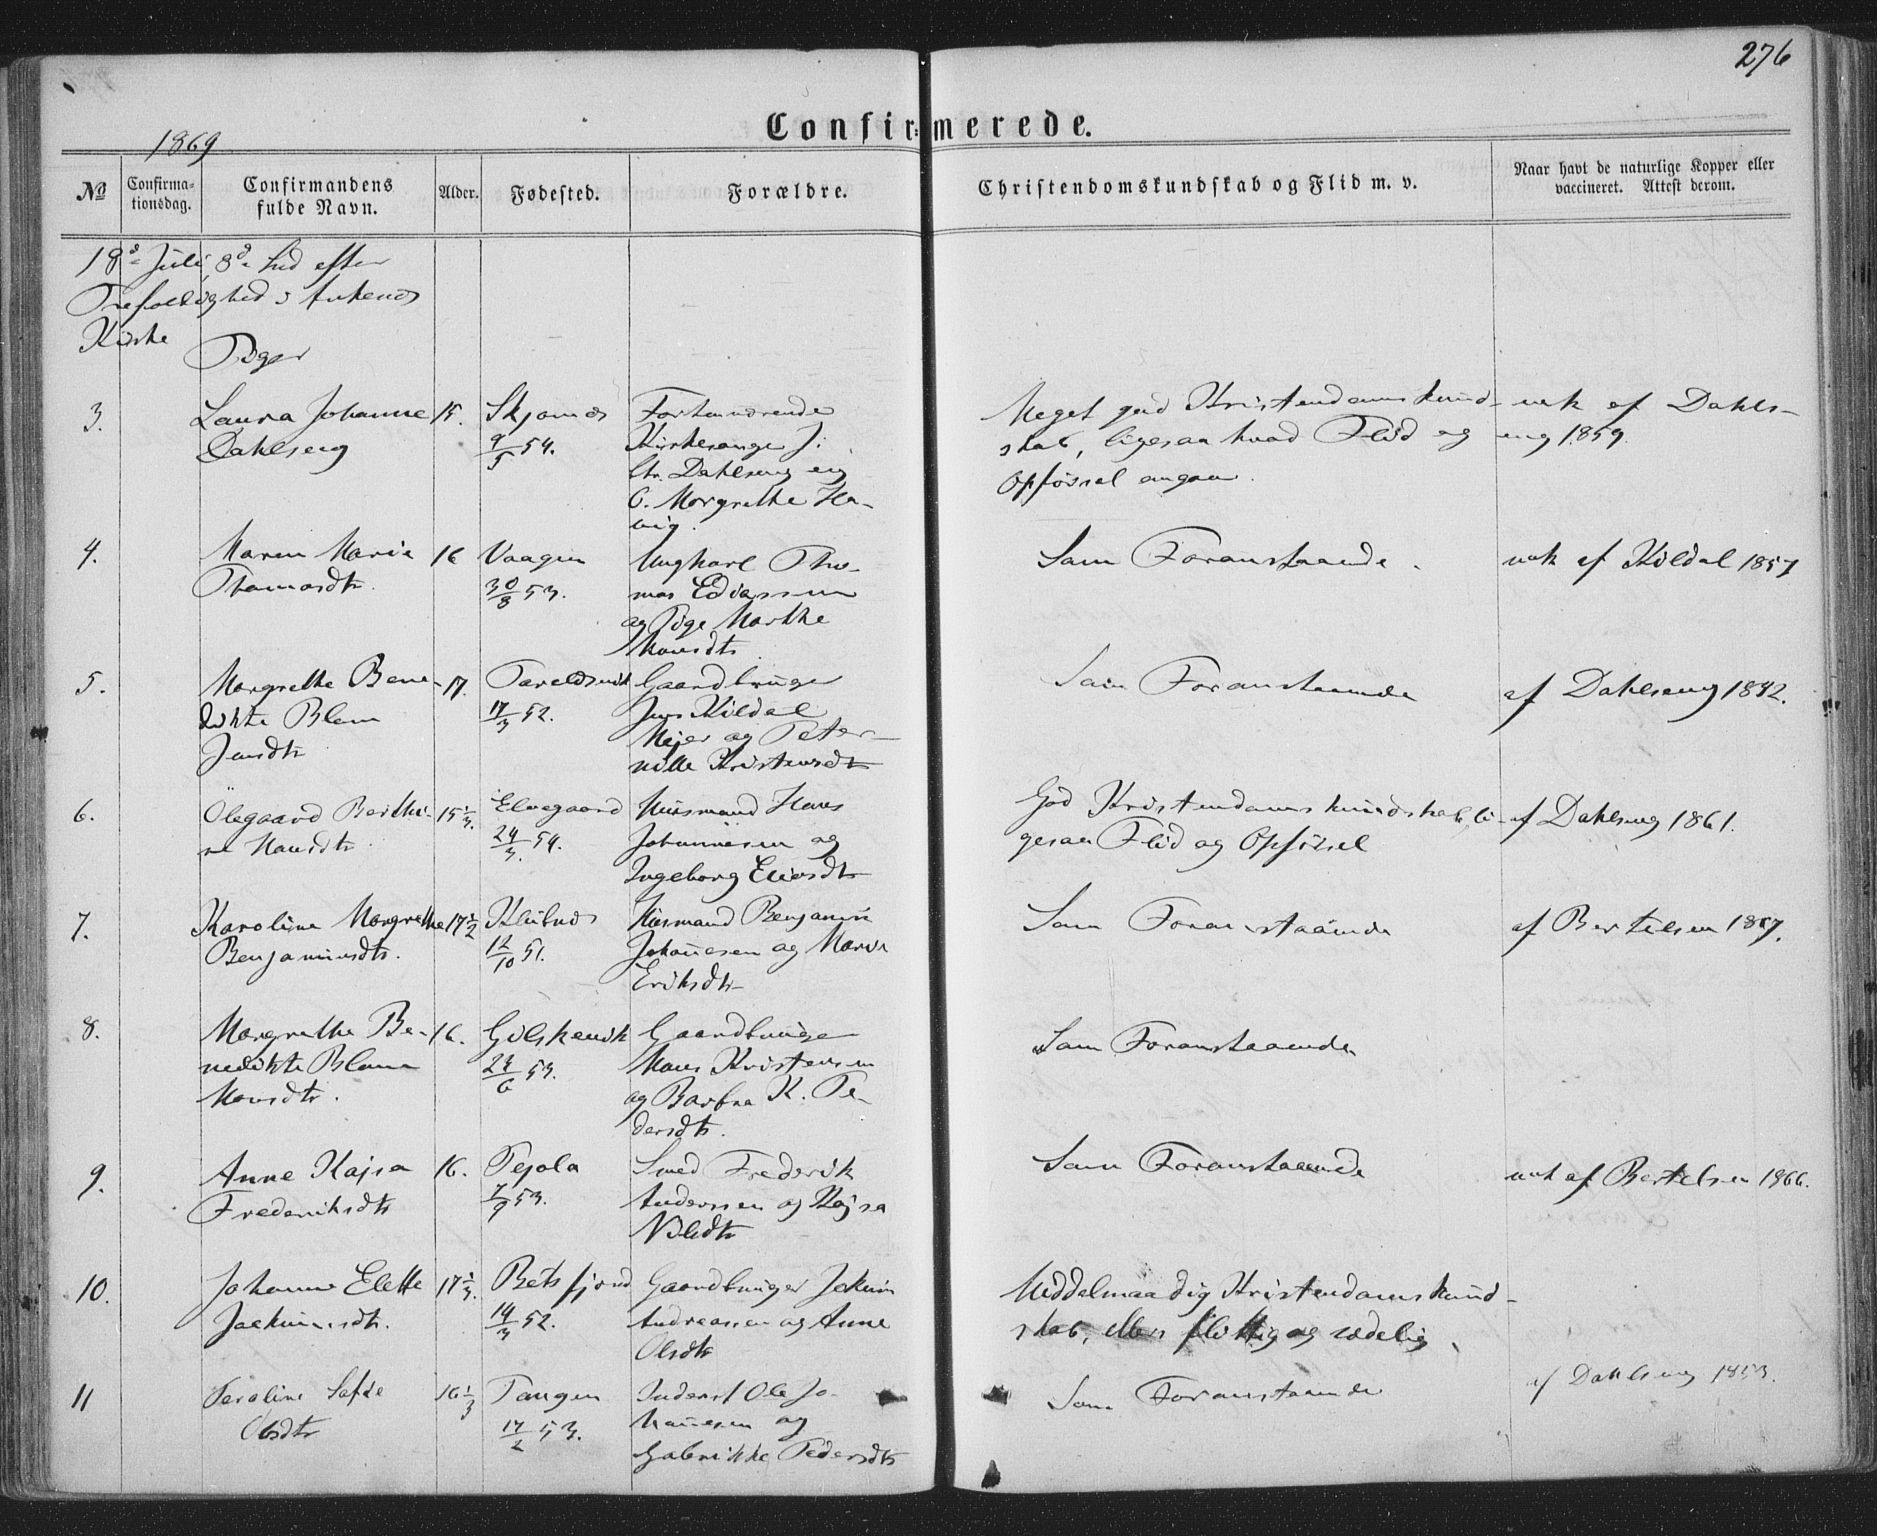 276
Confirmerede.
1869
No
Confirma-
tionsdag.
Confirmandens
fulde Navn.
Alder.
Fødested.
Forældre.
Christendomskundskab og Flid m. v.
Naar havt de naturlige Kopper eller
vaccineret. Attest derom.
18de Juli, 8de Sød efter
Trefoldighed i Ankenes
Kirke
Piger
3.
Laura Johanne
Dahlseng
15.
Skjomes
9/5 54.
Forhenværende
Kirkesanger J.
Chr. Dahlseng og
C. Margrethe Ha-
vig.
Meget god Kristendomskund-
skab, ligesaa hvad Flid og
Opførsel angaar.
vak af Dahls-
eng 1859.
4.
Maren Marie
Thomasdtr.
16
Vaagen
30/8 53.
Ungkarl Tho-
mas Ediassen
og Pige Marthe
Monsdtr.
Som Foranstaaende.
vak af Kildal 1857
5.
Margrethe Bene-
dikte Blom
Jensdtr
17.
Taraldsvik
17/3 52.
Gaardbruger
Jens Kildal
Mejer og Peter-
nille Kristensdtr
Som Foranstaaende
af Dahlseng 1852.
6.
Olegaard Berthi-
ne Hansdtr.
15 1/3.
Elvegaard
24/3. 54.
Husmand Hans
Johannesen og
Ingeborg Eliasdtr
God Kristendomskundskab, li-
gesaa Flid og Opførsel
af Dahlseng 1861.
7.
Karoline Margrethe
Benjaminsdtr.
17 1/2
Klubnes
12/10 51.
Husmand Benjamin
Johannesen og Maria
Eriksdtr
Som Foranstaaende
af Bertelsen 1857.
8.
Margrethe Be-
nedikte Blom
Monsdtr.
16.
Gilskevik
24/6 53.
Gaardbruger
Mons Kristensen
og Barbra K. Pe-
dersdtr.
Som Foranstaaende
9.
Anne Kajsa
Frederiksdtr
16.
Pejola
7/9 53.
Smed Frederik
Anderssen og Kajsa
Nilsdtr
Som Foranstaaende
vak af Bertelsen 1866.
10.
Johanne Elette
Joakimsdtr.
17 1/3.
Beisfjord
14/3 52.
Gaardbruger Jokum
Andreassen og Anne
Olsdtr
Middelmaadig Kristendomskund-
skab, ellers flittig og sædelig.
11
Seraline Sofie
Olsdtr
16 1/3
Tangen
17/2 53.
Inderst Ole Jo-
hannesen og
Gabrikke Pedersdtr
Som Foranstaaende
af Dahlseng 1853.